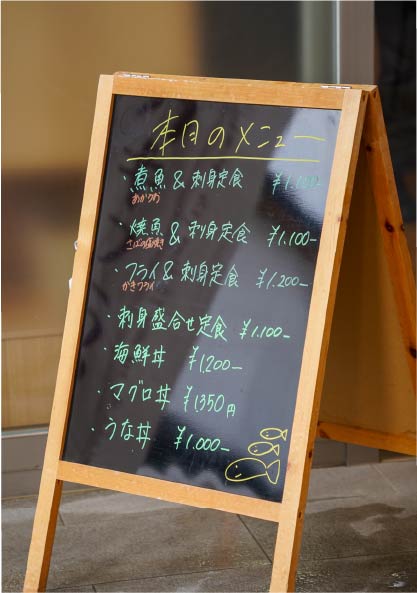 本日のメニュー
・煮魚&刺身定食 ¥1.100-
あかうお
・焼魚&刺身定食 ¥1.100-
さばの塩焼き
・フライ&刺身定食 ¥1.200-
かきフライ
・刺身盛合せ定食 ¥1.100-
・海鮮丼 ¥1200-
・マグロ丼 ¥1350円
・うな丼 ¥1.000-